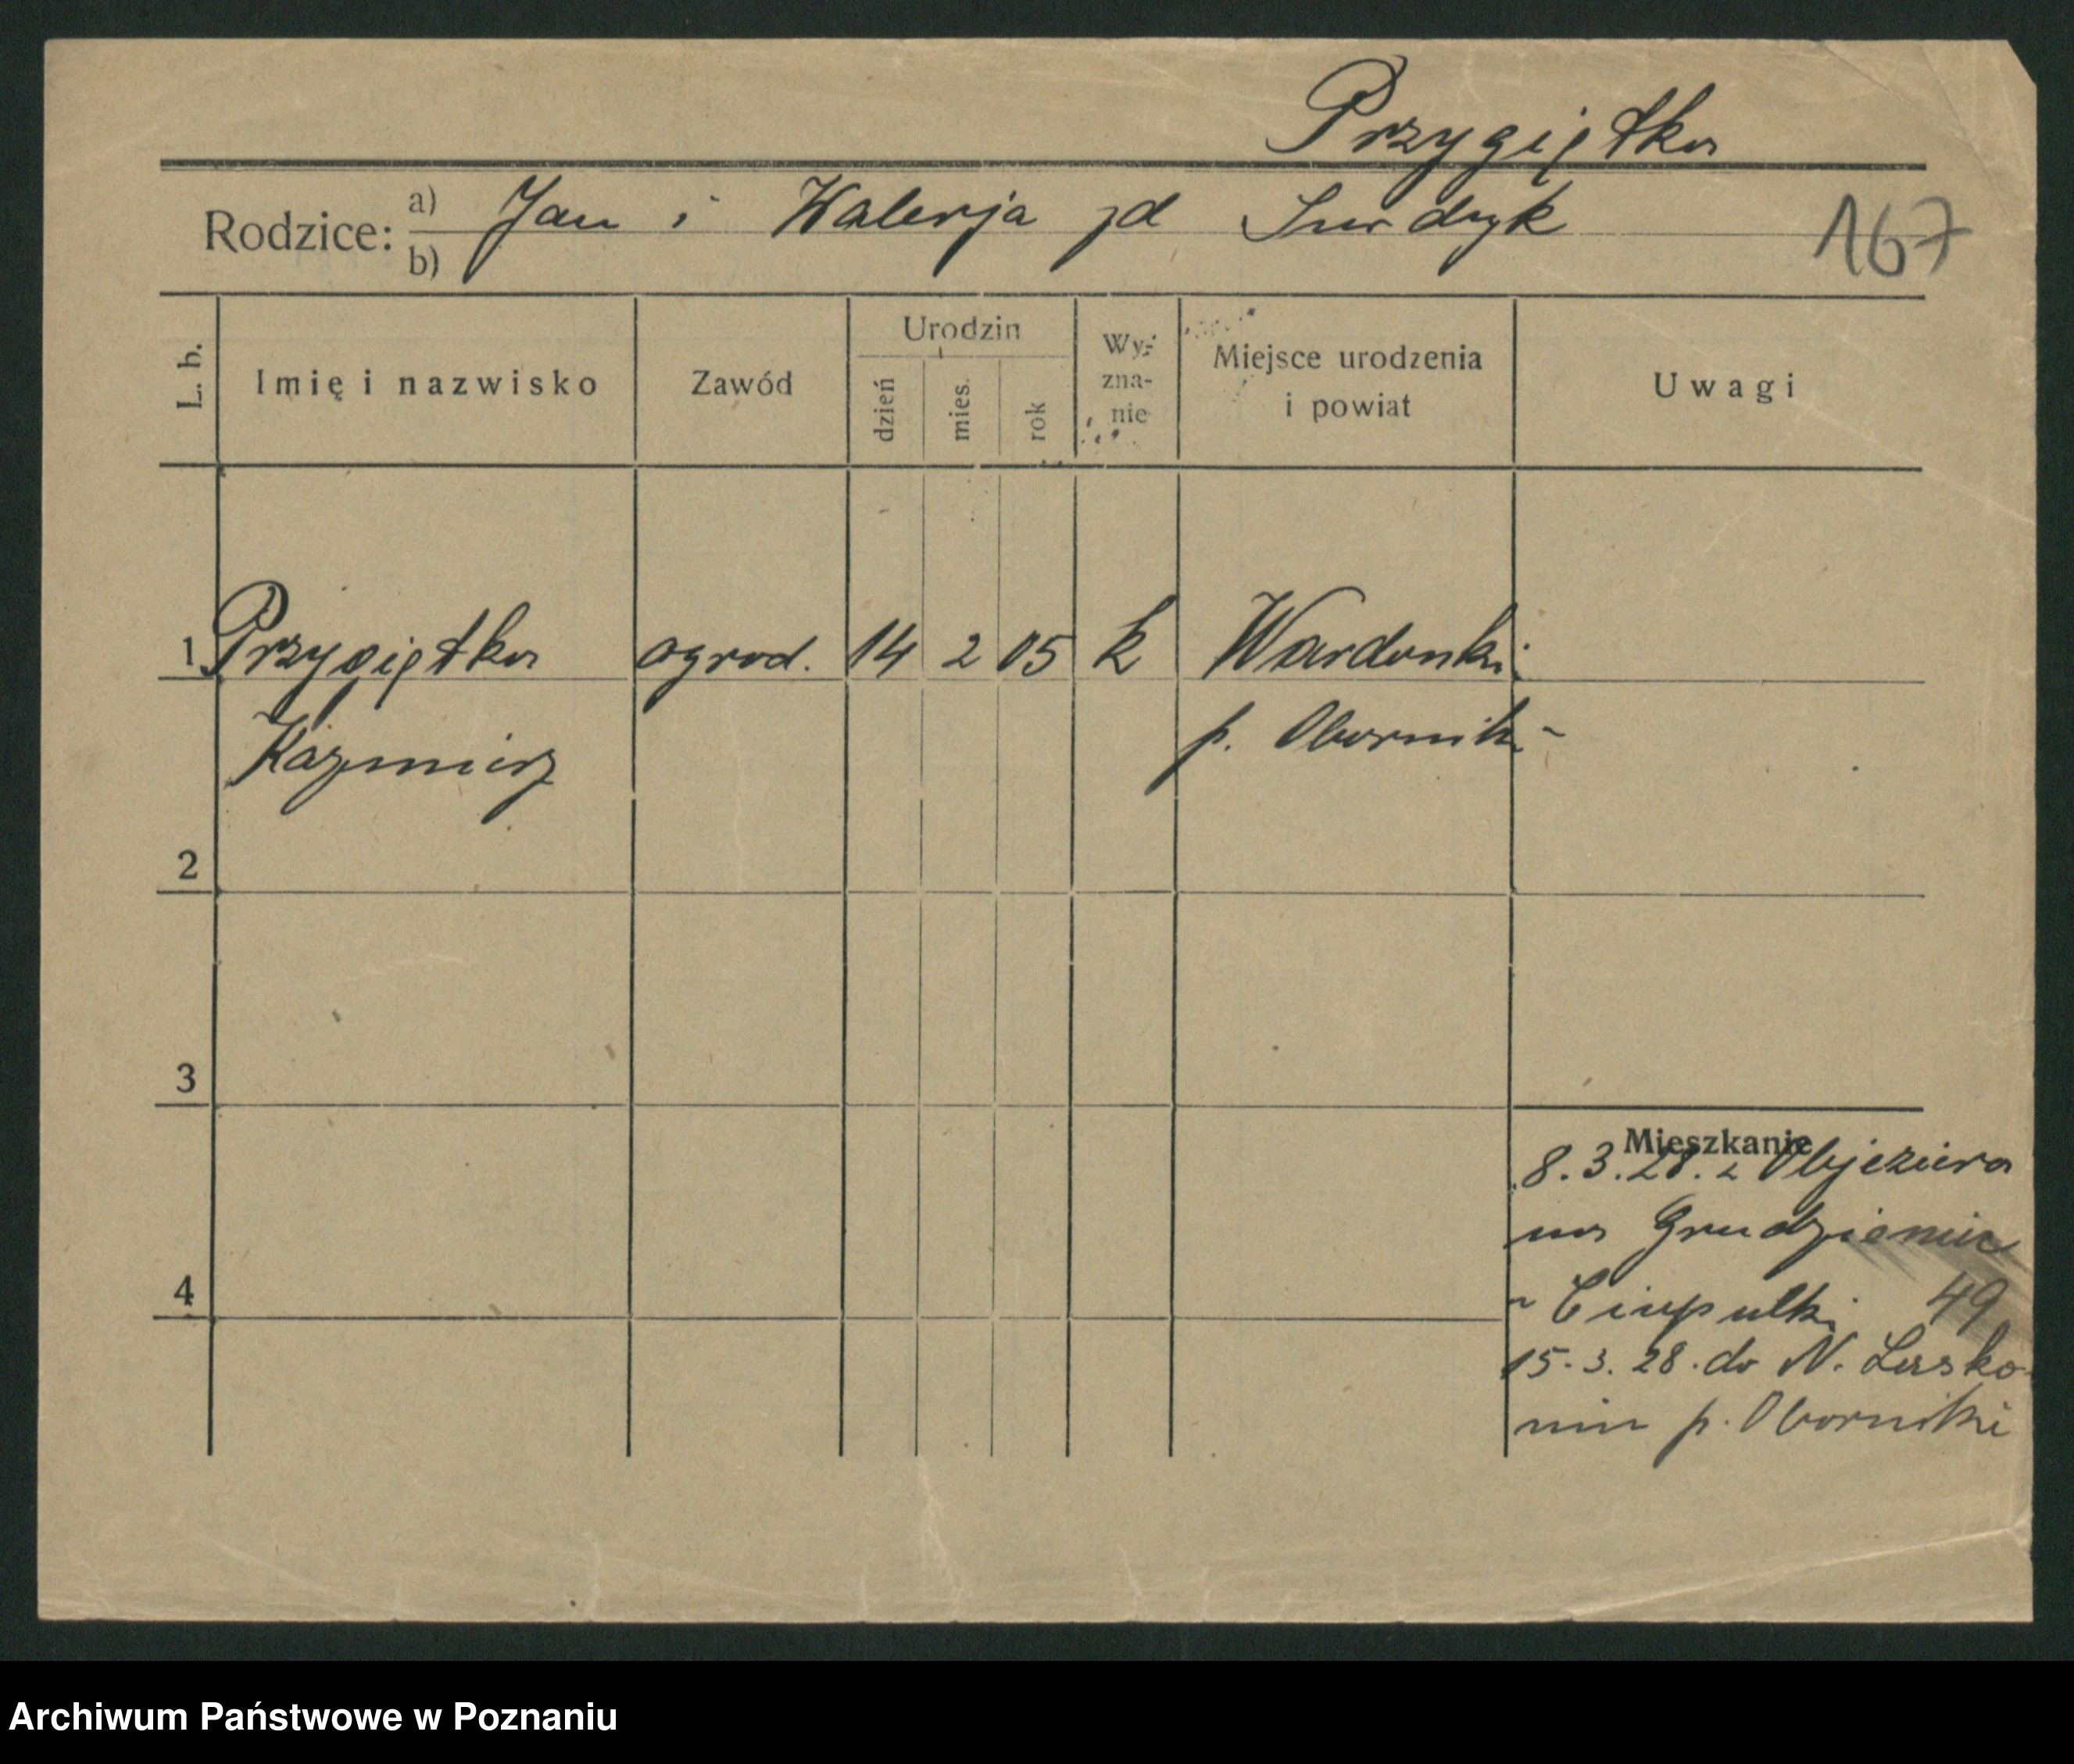 Przygiętka
Rodzice: a) b) Jan i Walerja zd Surdyk
167
L. b.
Imię i nazwisko
Zawód
Urodzin
dzień
mies.
rok
Wy-
zna-
nie
Miejsce urodzenia
i powiat
Uwagi
1 Przygiętka ogrod. 14 2 05 k Wardunki
Kazmierz p. Oborniki
2
3
4
Mieszkanie
8.3.28. z Objeziera
na Grudzieniec
49
15.3.28. do N.
p. Oborniki
Archiwum Państwowe w Poznaniu